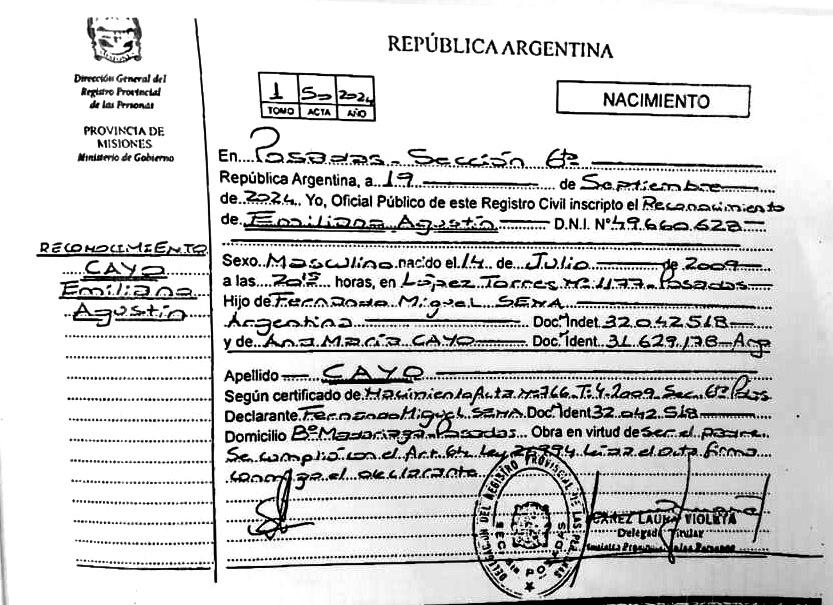 REPÚBLICA ARGENTINA
Dirección General del
Registro Provincial
de las Personas
PROVINCIA DE
MISIONES
Ministerio de Gobierno
1 50 2024
TOMO ACTA AÑO
NACIMIENTO
En Posadas - Sección 6ta
República Argentina, a 19 de Septiembre
de 2024. Yo, Oficial Público de este Registro Civil inscripto el Reconocimiento
de Emiliano Agustín D.N.I. Nº 49.660.628
RECONOCIMIENTO
CAYO
Emiliano
Agustín
Sexo Masculino nacido el 14 de Julio de 2009
a las 20:15 horas, en López Torres Nº 1177 - Posadas
Hijo de Fernando Miguel SENA
Argentina Doc. Indet. 32.042.518
y de Ana María CAYO Doc. Ident. 31.629.178 - Arg
Apellido CAYO
Según certificado de Nacimiento Acta Nº 766 T:4-2009 Sec. 6ta Pdas
Declarante Fernando Miguel SENA Doc. Ident 32.042.518
Domicilio Bº Madariaga - Posadas Obra en virtud de ser el padre.
Se cumplió con el Art. Ley Leída el acta firma
conmigo el declarante
DELEGACIÓN DEL REGISTRO PROVINCIAL DE LAS PERSONAS
SECCIÓN POSADAS
LAURA VIOLETA
Delegada Titular